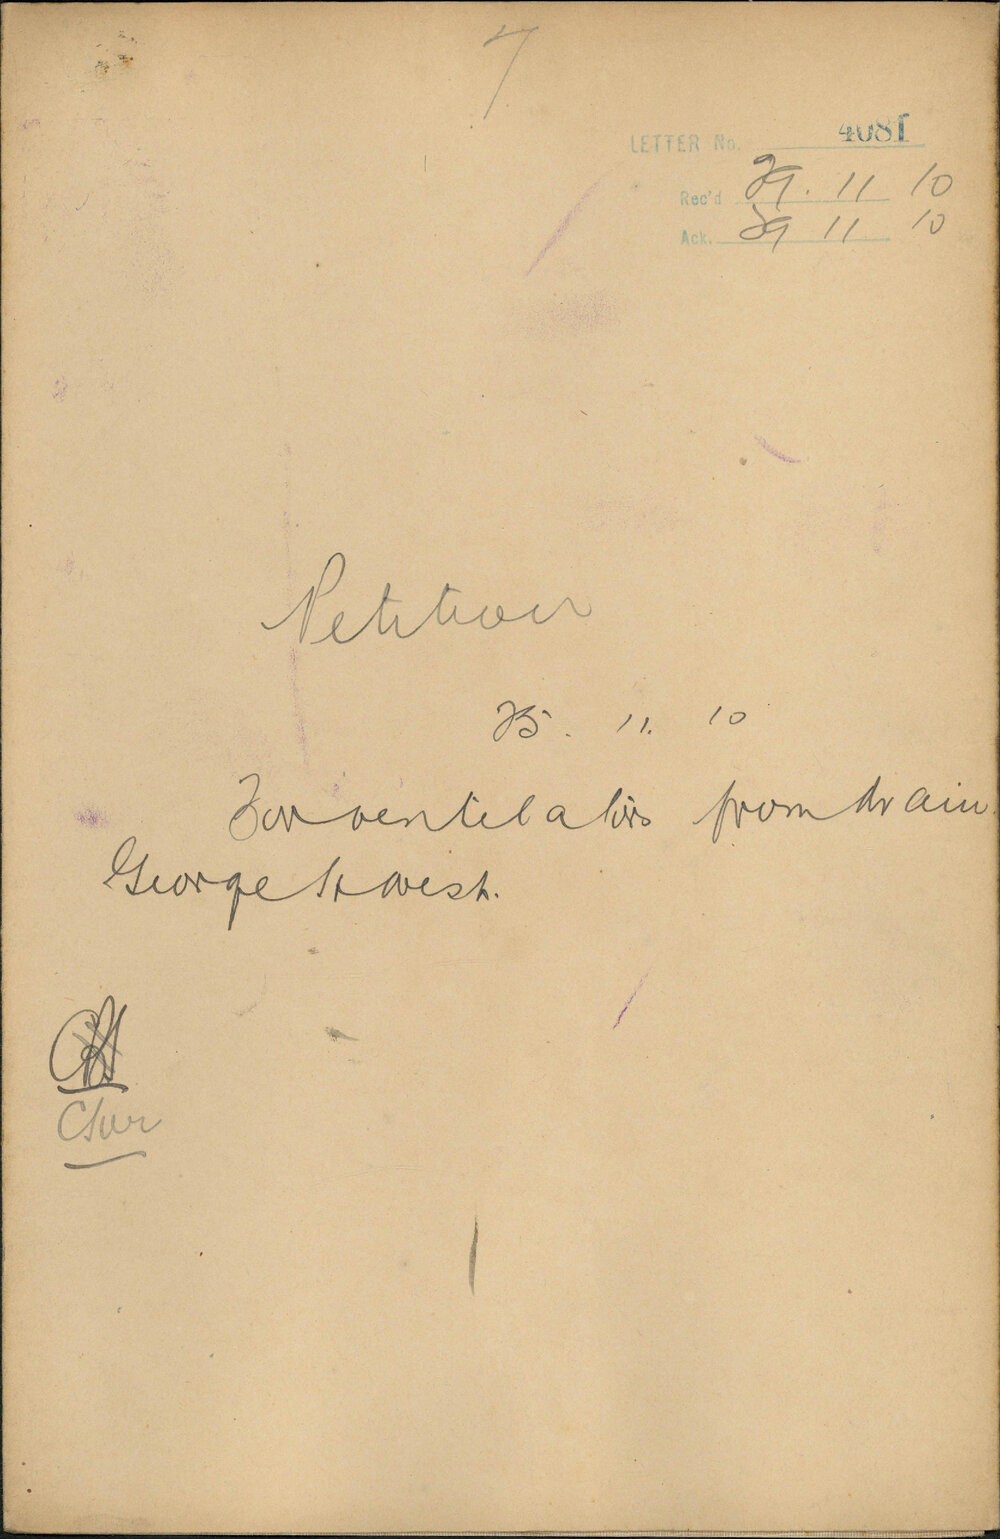 7
LETTER No. 4081
Rec'd 29. 11 10
Ack. 29 11 10
Petition
25. 11. 10
For ventilators from drain
George St West.